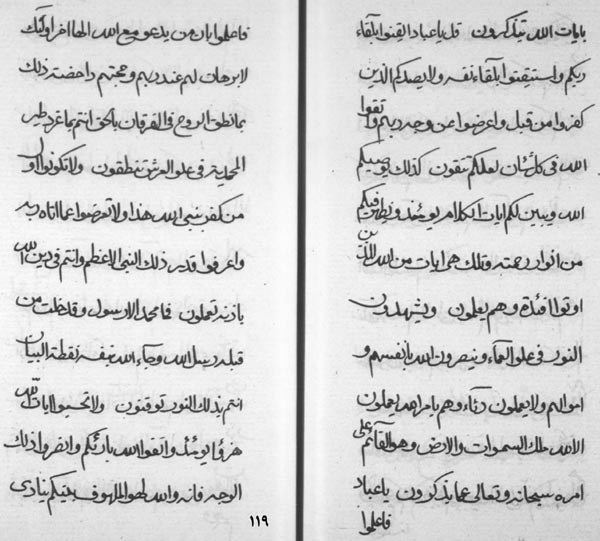 بايات الله تتذكرون قل يا عباد ايقنوا بلقاء
ربكم واستيقنوا بلقاء نفسه ولا يصدكم الذين
كفروا من قبل واعرضوا عن وجه ربهم واتقوا
الله في كل شان لعلكم تتقون كذلك يوصيكم
الله ويبين لكم ايات الامر يومئذ فيكم
من انوار رحمته وتلك هي ايات من الله للذين
اوتوا افئدة وهم يعلمون ويشهدون
النور في علو العماء وينصرون الله بانفسهم و
اموالهم ولا يعملون وهم بامر الله يعملون
الا لله ملك السموات والارض وهو القائم على
امره سبحانه وتعالى عما يذكرون يا عباد
فاعلموا
فاعلموا بان من يدعو مع الله الها اخر اولئك
لا برهان لهم عند ربهم وحجتهم داحضة وذلك
بما نطق الروح في الفرقان بالحق انتم بما غرد طير
المحمدية في علو العرش تنطقون ولا تكونوا اول
من كفر بنبي الله هذا ولا تعرضوا عما اتاه ربه
واعرفوا قدر ذلك النبي الاعظم وانتم في دين الله
باذنه تعملون فما محمد الا رسول وقد خلت من
قبله رسل الله وجاء الله بنفسه نقطة البيان
انتم بذلك النور توقنون ولا تحسبوا ايات الله
هزؤا يومئذ واتقوا الله بارئكم وانصروا ذلك
الوجه فانه والله لهو الملهوف بينكم ينادى
١١٩